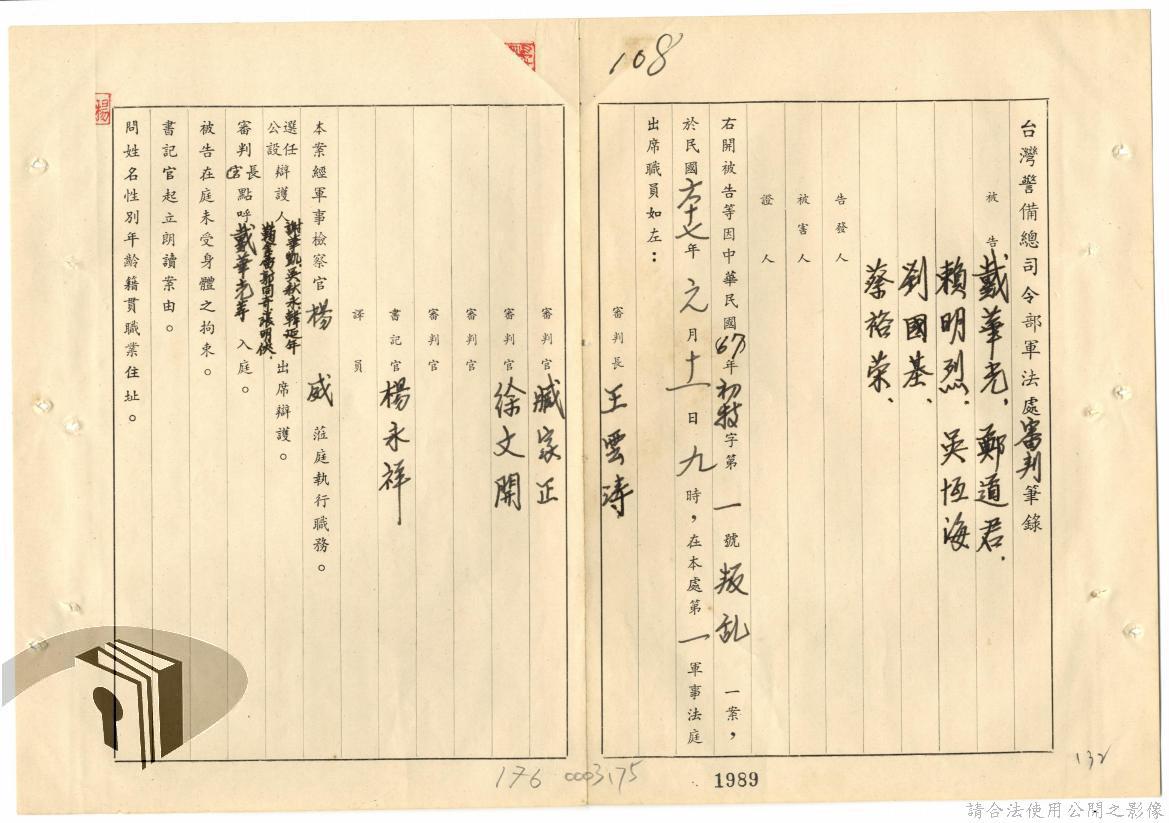 108
台灣警備總司令部軍法處審判筆錄
被告 戴華光、鄭道君、
賴明烈、吳恆海
劉國基、
蔡裕荣、
告發人
被害人
證人
右開被告等因中華民國67年初特字第一號叛乱一案，
於民國六十七年元月十一日九時，在本處第一軍事法庭
出席職員如左：
審判長 王雲濤
審判官 臧家正
審判官 徐文開
審判官
審判官
書記官 楊永祥
譯員
本案經軍事檢察官楊威蒞庭執行職務。
選任
公設辯護人 出席辯護。
審判長點呼戴華光等入庭。
被告在庭未受身體之拘束。
書記官起立朗讀案由。
問姓名性別年齡籍貫職業住址。
楊
176
0003175
1989
132
請合法使用公開之影像